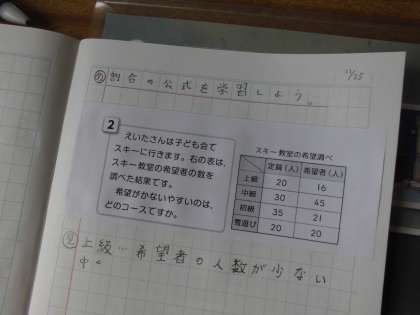 め 割合の公式を学習しよう。
11/25
2
えいたさんは子ども会で
スキーに行きます。右の表は、
スキー教室の希望者の数を
調べた結果です。
希望がかないやすいのは、
どのコースですか。
スキー教室の希望調べ
定員(人) 希望者(人)
上級 20 16
中級 30 45
初級 35 21
雪遊び 20 20
上級…希望者の人数が少ない